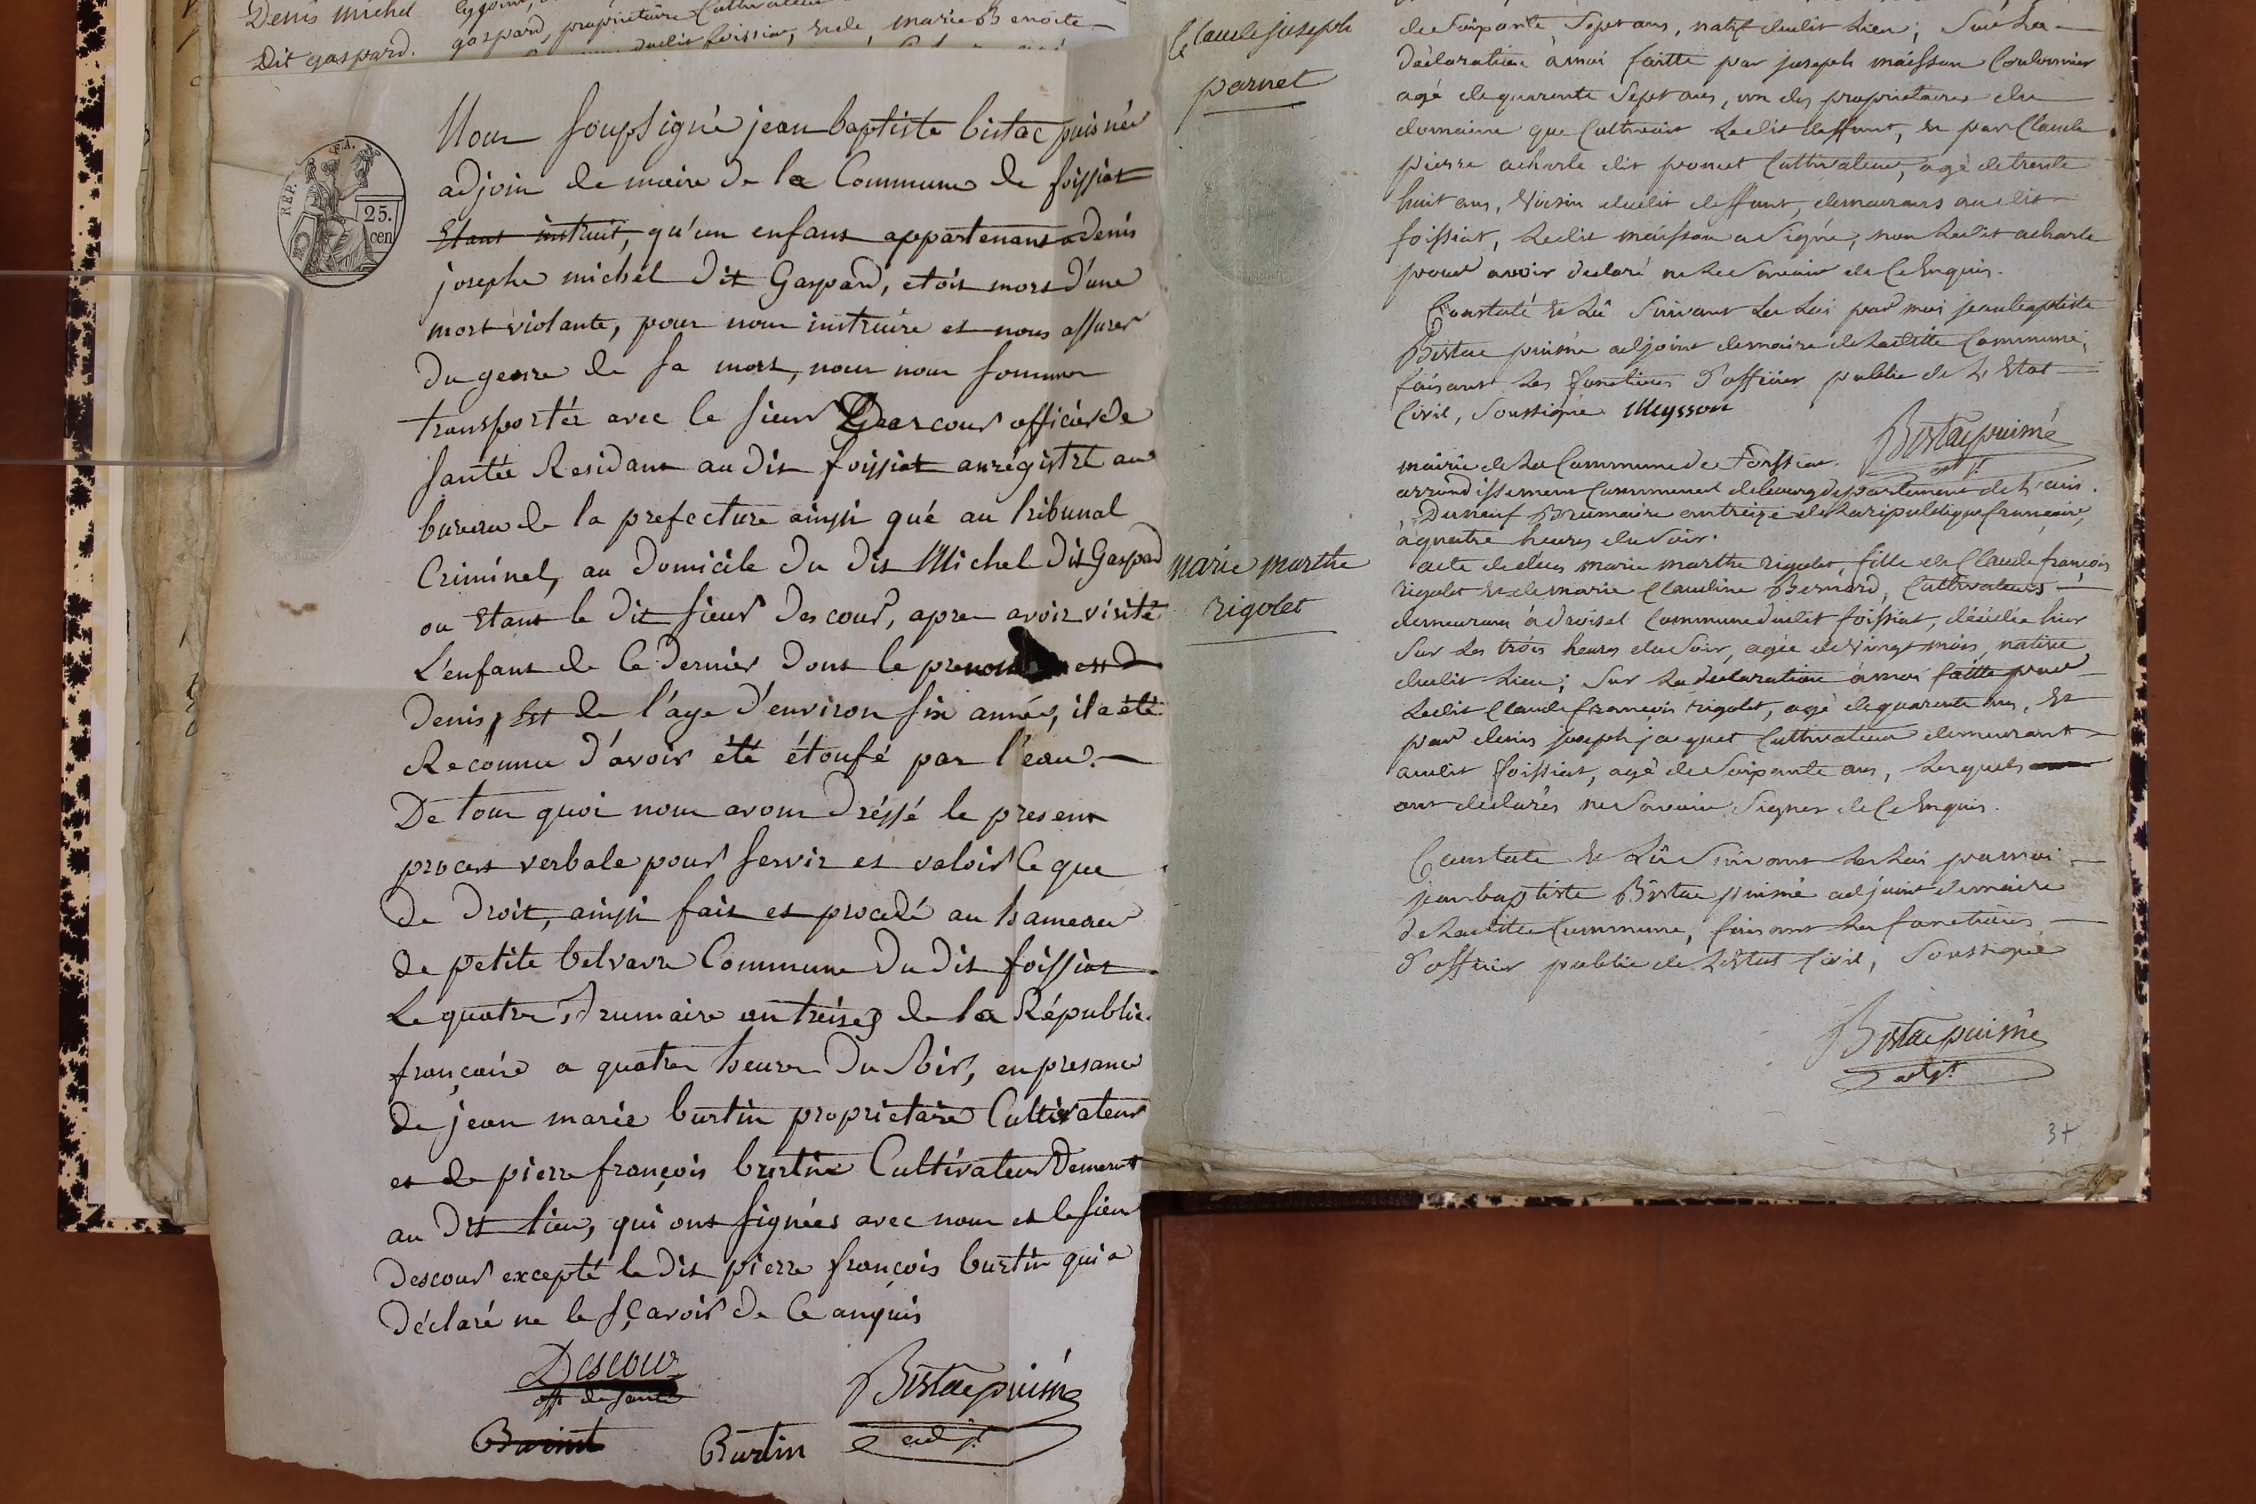 Denis michel
Dit gaspard.
gaspard, propriétaire Cultivateur
dudit foissiat, et de marie Benoite
REP. FRA.
25.
cen
Nous soussigné jean baptiste bistac puisnée
adjoin de maire de la Commune de foissiat
Etant instruit, qu'un enfant appartenant a denis
josephe michel dit Gaspard, etoit mort d'une
mort violante, pour nous instruire et nous assurer
du genre de sa mort, nous nous sommes
transportés avec le sieur Descour officier de
santée Residant au dit foissiat anrégistré au
bureau de la prefecture ainsi qué au tribunal
Criminel, au domicile du dit Michel dit Gaspard
ou Etant le dit sieur descour, apres avoir visité
L'enfant de Ce dernier dont le prenom est
denis, Est de l'age d'environ six année, il a été
Reconnu d'avoir été étoufé par l'eau.
De tout quoi nous avons dréssé le present
proces verbale pour servir et valoir Ce que
de droit, ainsi fait et procédé au hameau
de petite belvavre Commune du dit foissiat
Le quatre Brumaire an treize de la République
françaire a quatre heure du soir, en presance
de jean marie burtin proprietaire Cultivateur
et de pierre françois burtin Cultivateur demeurt
au dit lieu, qui ont signées avec nous et le sieur
descour excepté le dit pierre françois burtin qui a
déclaré ne le sçavoir de Ce anquis
Descour
off de santé
Burtin
Bistac puiné
adjt
Claude joseph
parnet
de soixante sept ans, natif dudit lieu; sur la
déclaration à moi faitte par joseph maisson
agé de quarente sept ans, un des propriétaires du
domaine que Cultivait ledit deffunt, et par Claude
pierre acharle dit ponet Cultivateur, agé de trente
huit ans, voisin dudit deffunt, demeurans audit
foissiat, ledit maisson a signé, non ledit acharle
pour avoir declaré ne le savoir de Ce Enquis.
Constaté et Lû suivant la Loi par moi jean baptiste
Bistac puiné adjoint de maire de ladite Commune,
faisant les fonctions d'officier public de l'Etat
Civil, soussigné Meysson
Bistac puiné
adjt
mairie de la Commune de foissiat
arrondissement Communal de bourg departement de l'ain.
Du neuf Brumaire an treize de la republique française,
a quatre heures du soir.
marie marthe
rigolet
acte de décès marie marthe rigolet fille de Claude françois
rigolet et de marie Claudine Bernard, Cultivateurs
demeurans à droiset Commune dudit foissiat, décédée hier
sur les trois heures du soir, agée de vingt mois, native
dudit lieu; sur la declaration à moi faitte par
ledit Claude françois rigolet, agé de quarente ans, et
par denis joseph jaquet Cultivateur demeurant
audit foissiat, agé de soixante ans, lesquels
ont déclarés ne savoir signer de Ce Enquis.
Constaté et Lû suivant la Loi par moi
jean baptiste Bistac puiné adjoint de maire
de ladite Commune, faisant les fonctions
d'officier public de l'Etat Civil, soussigné
Bistac puiné
adjt
37